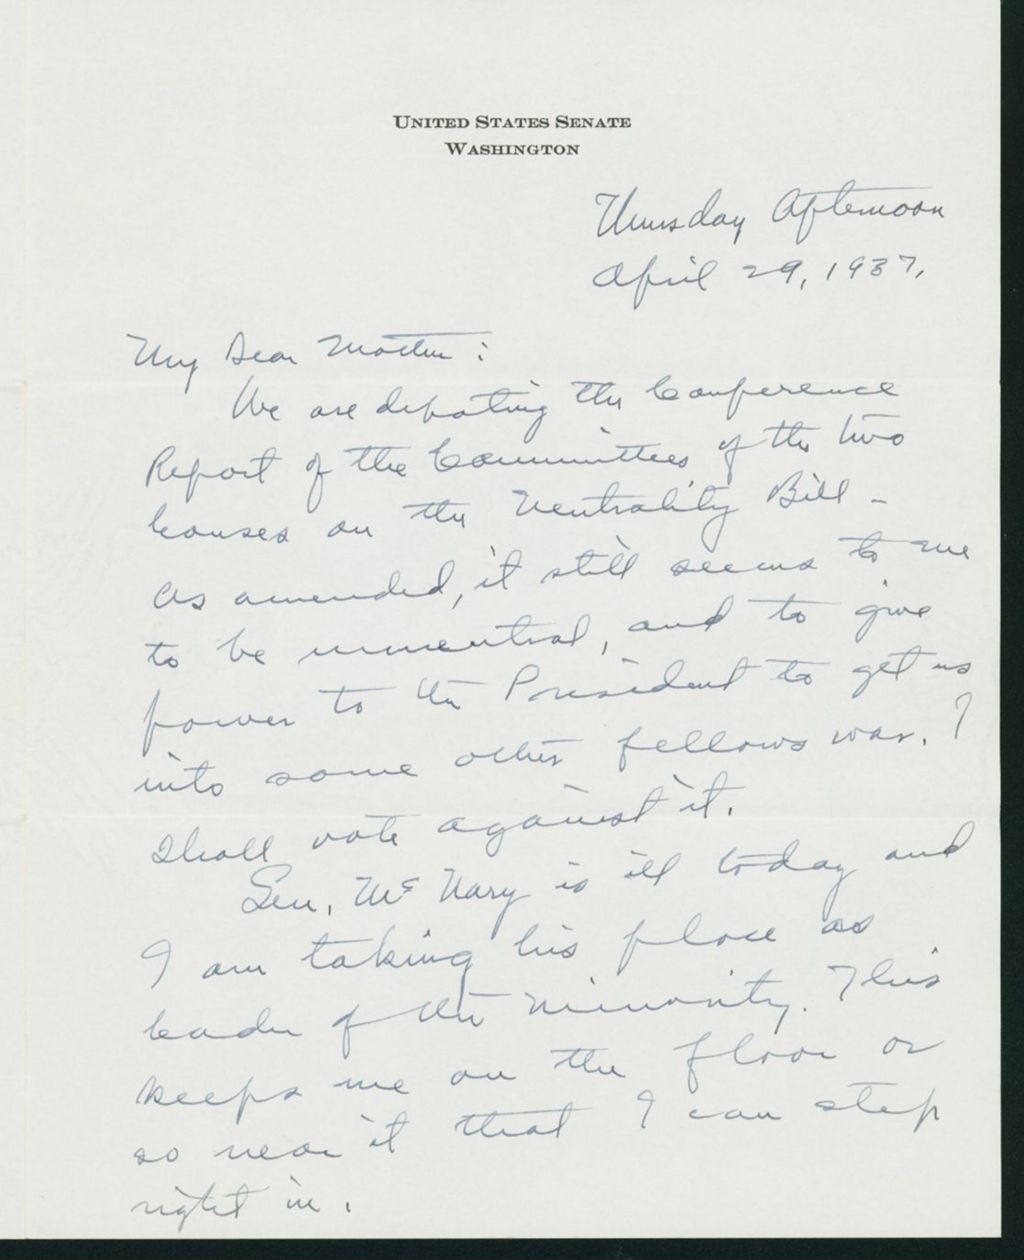 UNITED STATES SENATE
WASHINGTON
Thursday Afternoon
April 29, 1937.
My Dear Mother:
We are debating the Conference
Report of the Committees of the two
houses on the Neutrality Bill -
As amended, it still seems to me
to be unneutral, and to give
power to the President to get us
into some other fellows war. I
shall vote against it.
Sen. McNary is ill today and
I am taking his place as
leader of the minority. This
keeps me on the floor or
so near it that I can step
right in.